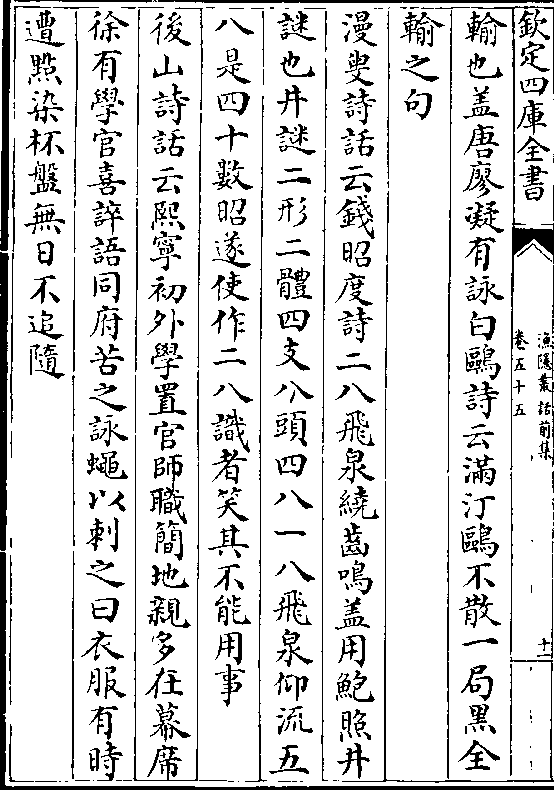 欽定四庫全書
漁隱叢話前集
卷五十五
十一
輸也盖唐廖凝有詠白鷗詩云滿汀鷗不散一局黑全
輸之句
漫叟詩話云錢昭度詩二八飛泉繞齒鳴盖用鮑照井
謎也井謎二形二體四支八頭四八一八飛泉仰流五
八是四十數昭遂使作二八識者笑其不能用事
後山詩話云熙寧初外學置官師職簡地親多在幕席
徐有學官喜誶語同府苦之詠蠅以刺之曰衣服有時
遭㸃染杯盤無日不追隨